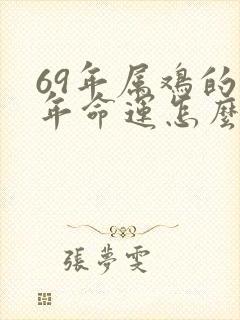 69年属鸡的
年命運怎麼
張夢雯